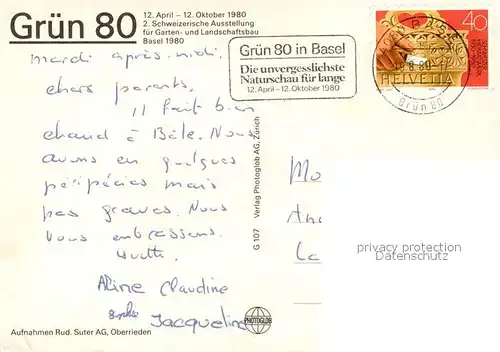 Grün 80
12. April – 12. Oktober 1980
2. Schweizerische Ausstellung
für Garten- und Landschaftsbau
Basel 1980
mardi après-midi
chers parents,
Il fait bien
chaud à Bâle. Nous
avons eu quelques
péripécies mais
pas graves. Nous
vous embrassons.
Aline Claudine
Sophie Jacqueline
Aufnahmen Rud. Suter AG, Oberrieden
G 107 Verlag Photoglob AG, Zürich
PHOTOGLOB
Grün 80 in Basel
Die unvergesslichste
Naturschau für lange
12. April – 12. Oktober 1980
20
40
HELVETIA
Grün 80
privacy protection
Datenschutz